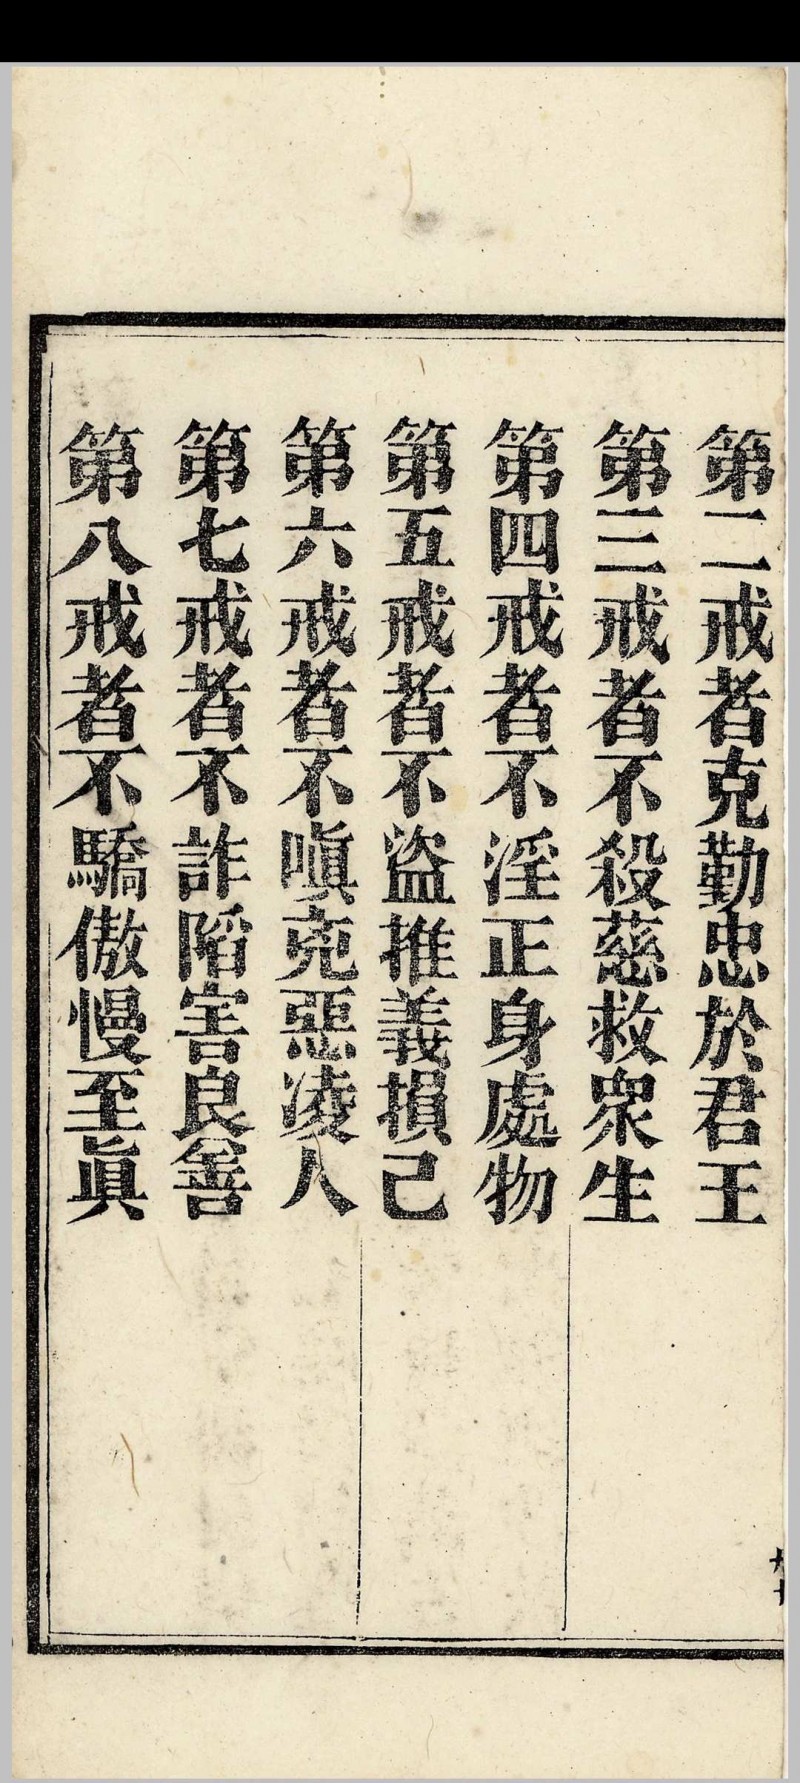 第二戒者克勤忠於君王
第三戒者不殺慈救衆生
第四戒者不淫正身處物
第五戒者不盜推義損己
第六戒者不嗔兇惡凌人
第七戒者不詐陷害良善
第八戒者不驕傲慢至眞